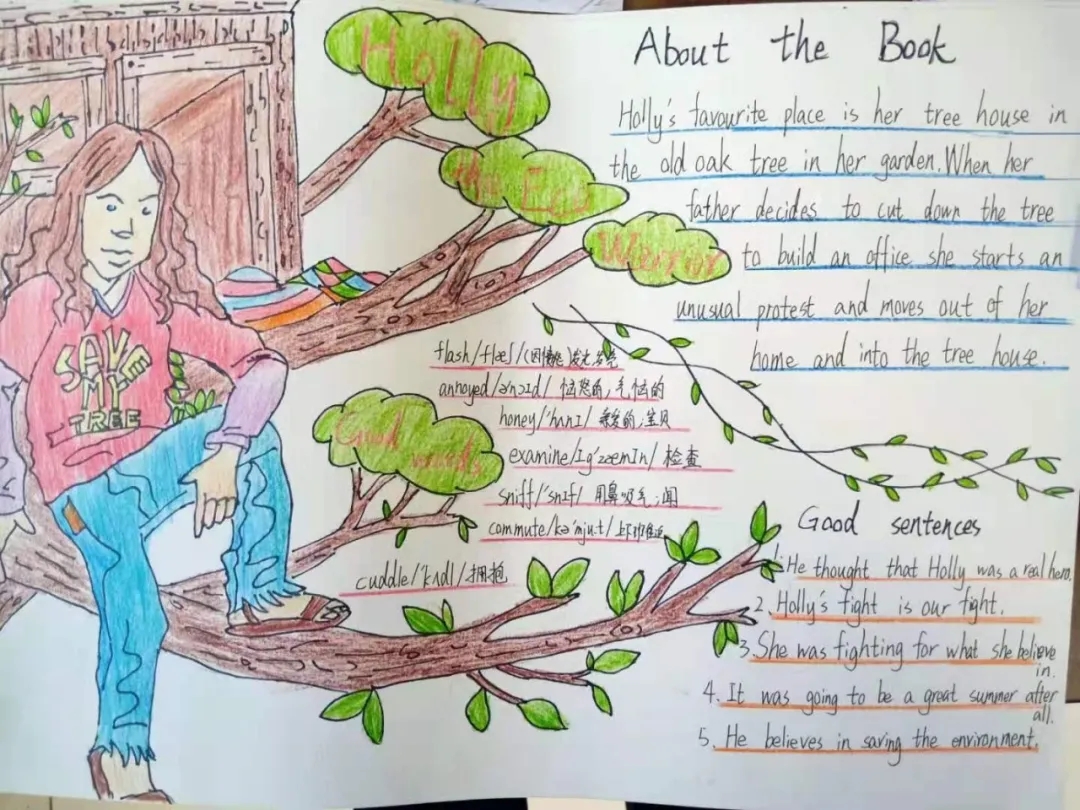 Holly
the Eco
Warrior
SAVE
MY
TREE
About the Book
Holly's favourite place is her tree house in
the old oak tree in her garden. When her
father decides to cut down the tree
to build an office she starts an
unusual protest and moves out of her
home and into the tree house.
Good
words
flash/flæʃ/
annoyed/ənɔɪd/ 恼怒的,气恼的
honey/'hʌnɪ/ 亲爱的;宝贝
examine/ɪg'zæmɪn/ 检查
sniff/'snɪf/ 用鼻吸气;闻
commute/kə'mju:t/
cuddle/'kʌdl/ 拥抱
Good sentences
1. He thought that Holly was a real hero.
2. Holly's fight is our fight.
3. She was fighting for what she believe
in.
4. It was going to be a great summer after
all.
5. He believes in saving the environment.